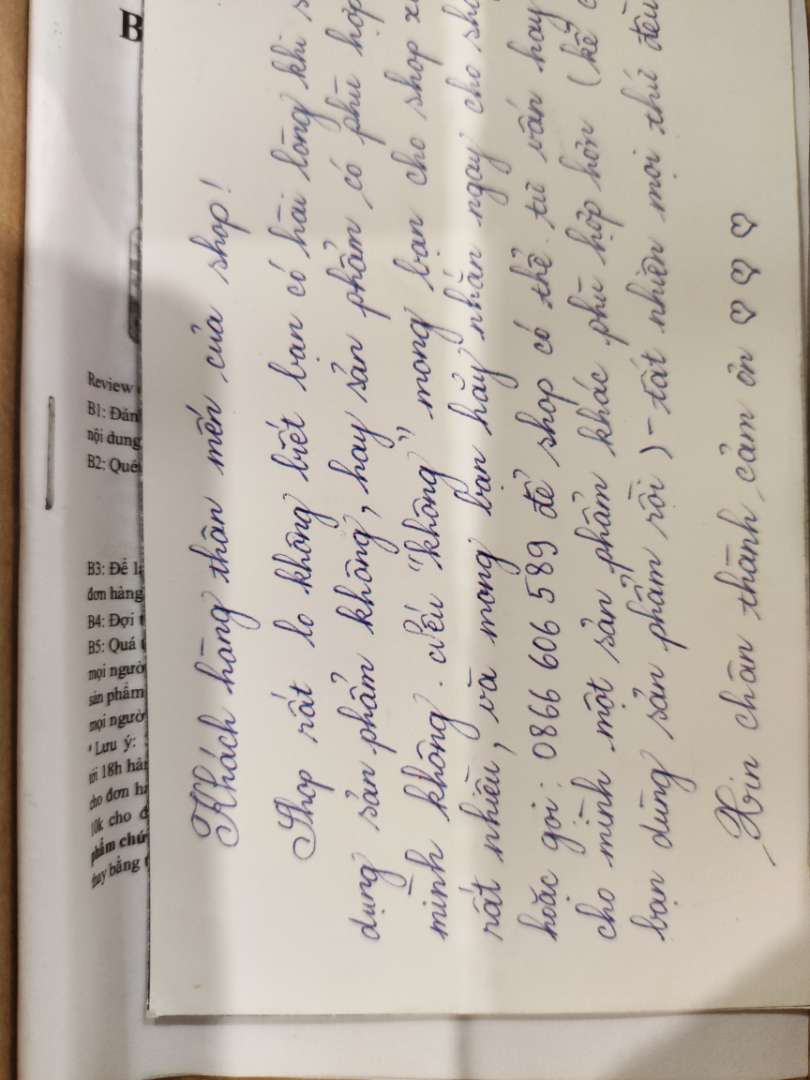 B
Review
B1: Đán
nội dung
B2: Qué
B3: Để
đơn hàng
B4: Đợi
B5: Quá
mọi ngườ
sản phẩm
mọi ngườ
* Lưu ý:
tới 18h hàn
cho đơn h
10k cho đ
phẩm chứ
thay bằng
Khách hàng thân mến của shop!
Shop rất lo không biết bạn có hài lòng khi s
dụng sản phẩm không, hay sản phẩm có phù hợp
mình không. Nếu "không" mong bạn cho shop xi
rất nhiều, và mong bạn hãy nhắn ngay cho sho
hoặc gọi: 0866 606 589 để shop có thể tư vấn hay
cho mình một sản phẩm khác phù hợp hơn (kể c
bạn dùng sản phẩm rồi) - tất nhiên mọi thứ đều
Xin chân thành cảm ơn ♡ ♡ ♡